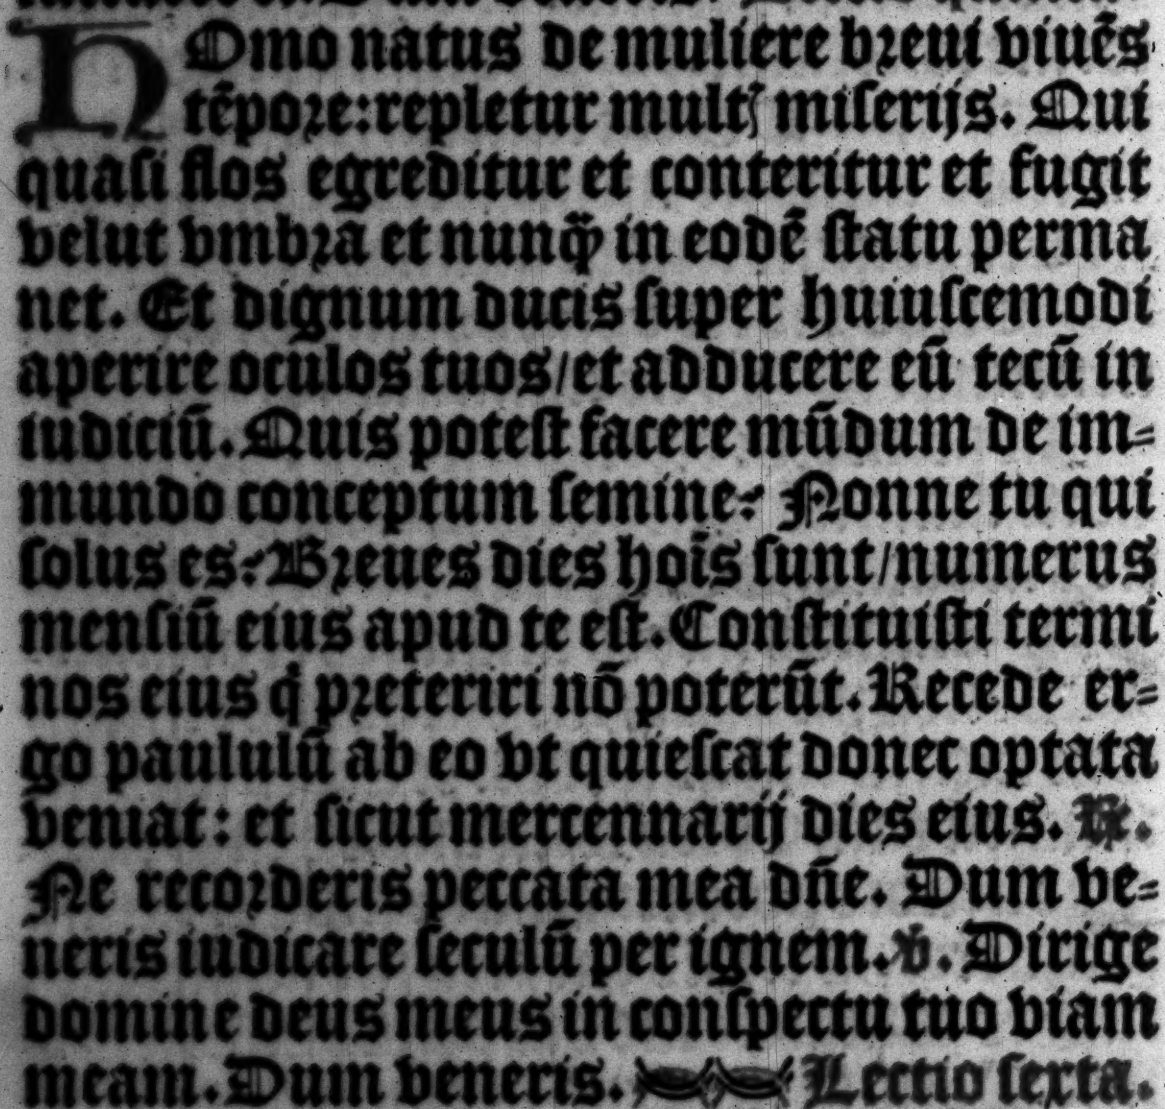 HOmo natus de muliere breui viuēs
tēpore: repletur multꝭ miserijs. Qui
quasi flos egreditur et conteritur et fugit
velut vmbra et nunqꝫ̄ in eodē statu perma
net. Et dignum ducis super huiuscemodi
aperire oculos tuos/et adducere eū tecū in
iudiciū. Quis potest facere mūdum de im-
mundo conceptum semine? Nonne tu qui
solus es? Breues dies hoīs sunt/numerus
mensiū eius apud te est. Constituisti termi
nos eius qͥ preteriri nō poterūt. Recede er-
go paululū ab eo vt quiescat donec optata
veniat: et sicut mercennarij dies eius. ℟.
Ne recorderis peccata mea dn̄e. Dum ve-
neris iudicare seculū per ignem. ℣. Dirige
domine deus meus in conspectu tuo viam
meam. Dum veneris. Lectio sexta.